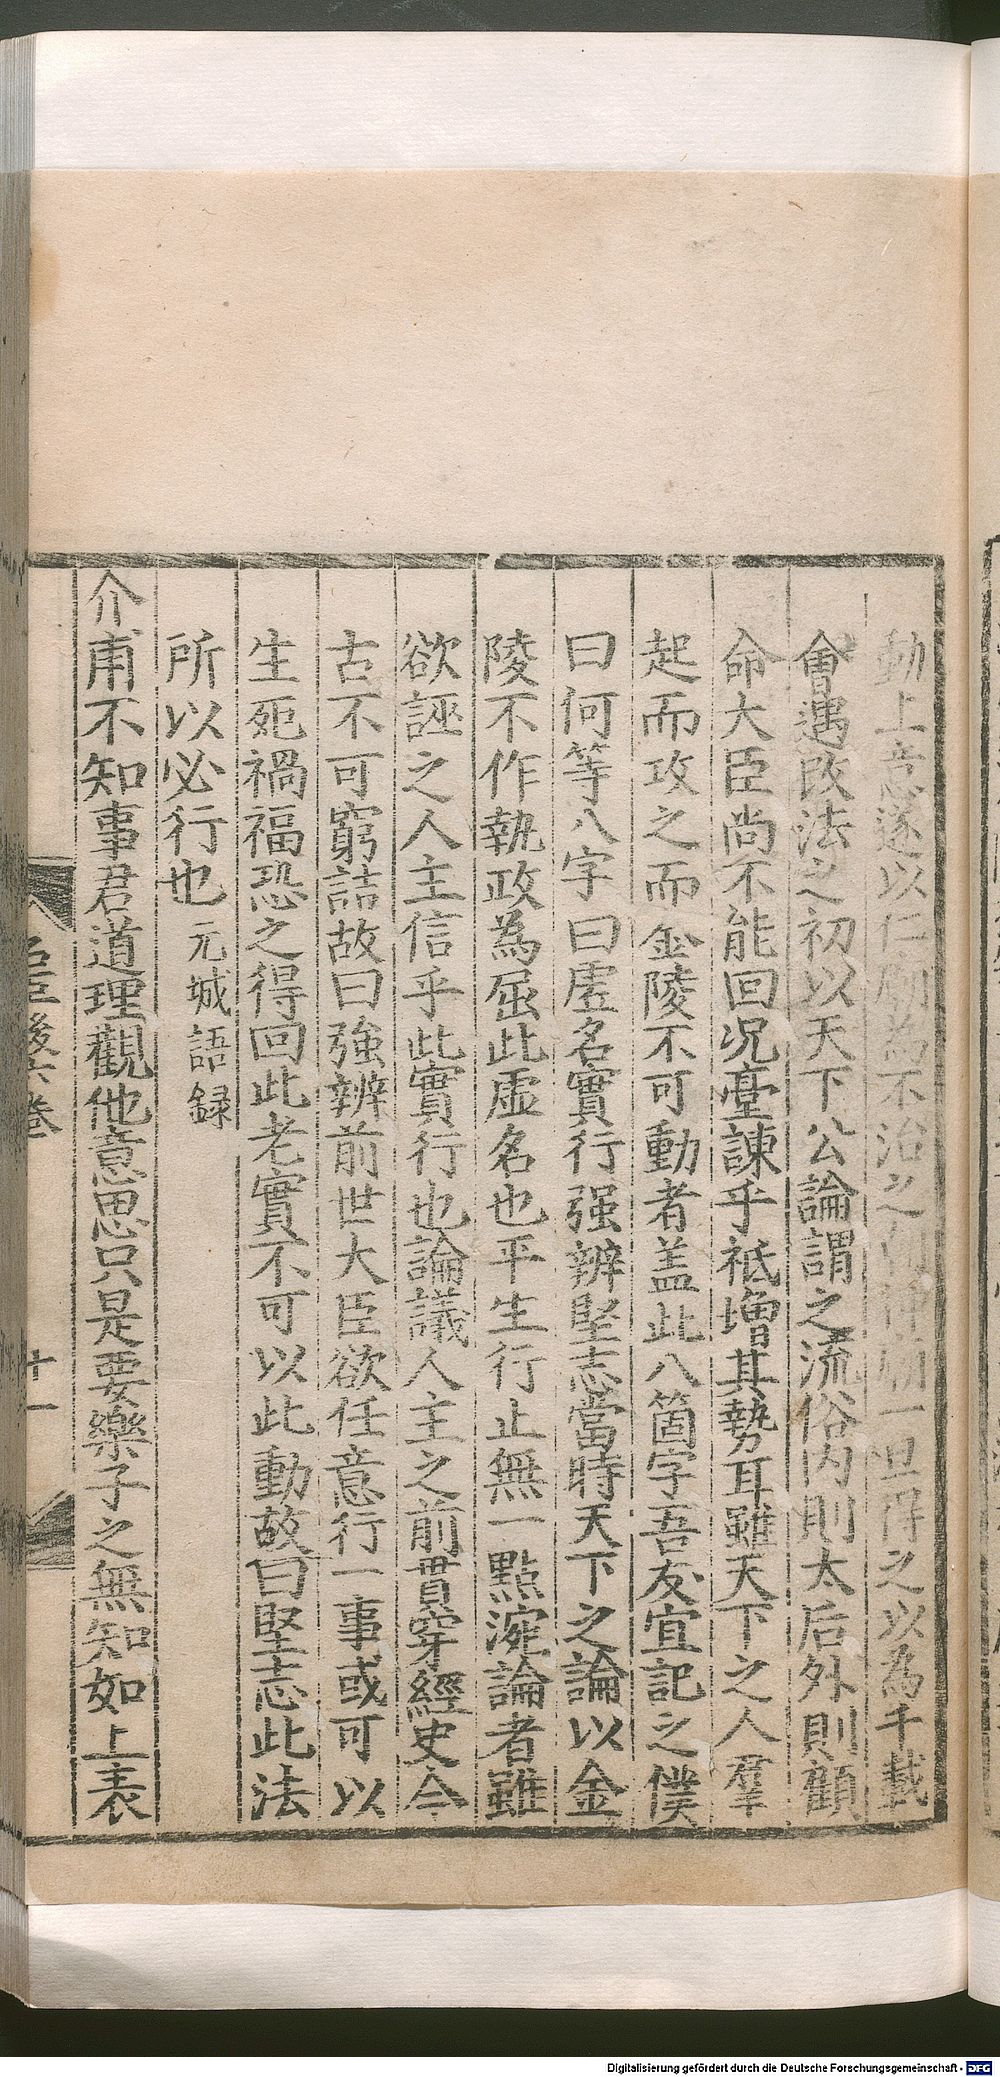 動上意遂以仁廟為不治之朝神廟一旦得之以為千載
會遇改法之初以天下公論謂之流俗内則太后外則顧
命大臣尚不能回况臺諫乎祗增其勢耳雖天下之人羣
起而攻之而金陵不可動者盖此八箇字吾友宜記之僕
曰何等八字曰虛名實行强辨堅志當時天下之論以金
陵不作執政為屈此虛名也平生行止無一點涴論者雖
欲誣之人主信乎此實行也論議人主之前貫穿經史今
古不可窮詰故曰强辨前世大臣欲任意行一事或可以
生死禍福恐之得回此老實不可以此動故曰堅志此法
所以必行也 元城語録
介甫不知事君道理觀他意思只是要樂子之無知如上表
名臣後六卷
十一
Digitalisierung gefördert durch die Deutsche Forschungsgemeinschaft - DFG